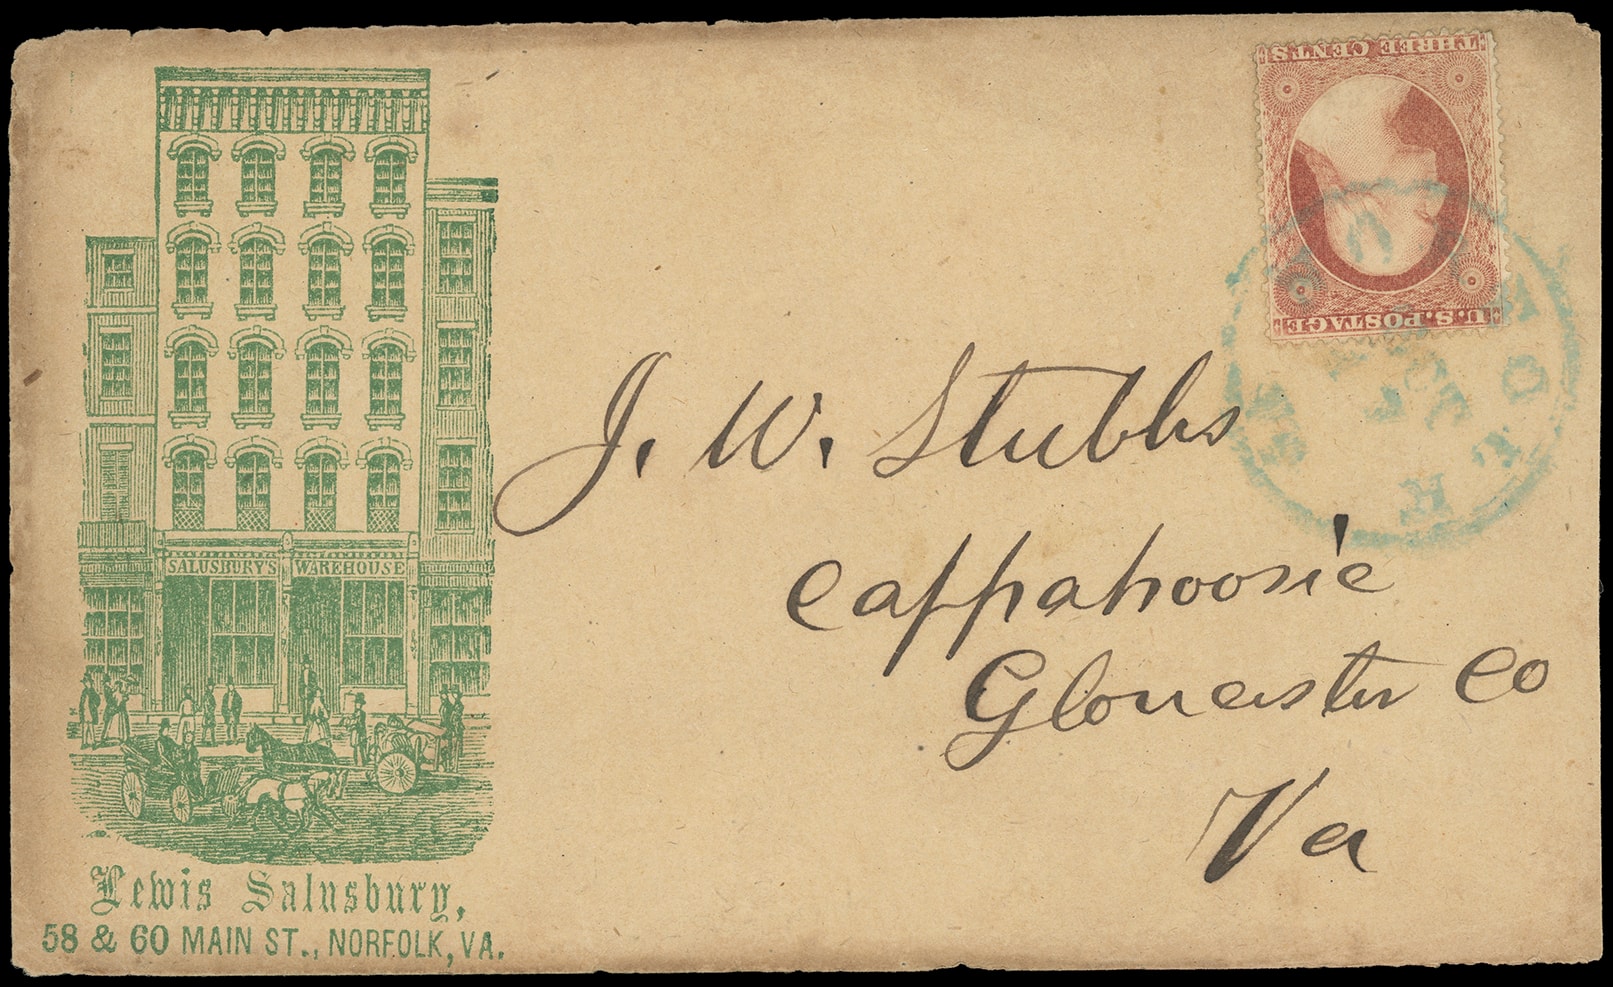 THREE CENTS
U.S. POSTAGE
NORFOLK
J. W. Stubbs
Cappahoosie
Gloucester Co
Va
SALUSBURY'S WAREHOUSE
Lewis Salusbury,
58 & 60 MAIN ST., NORFOLK, VA.